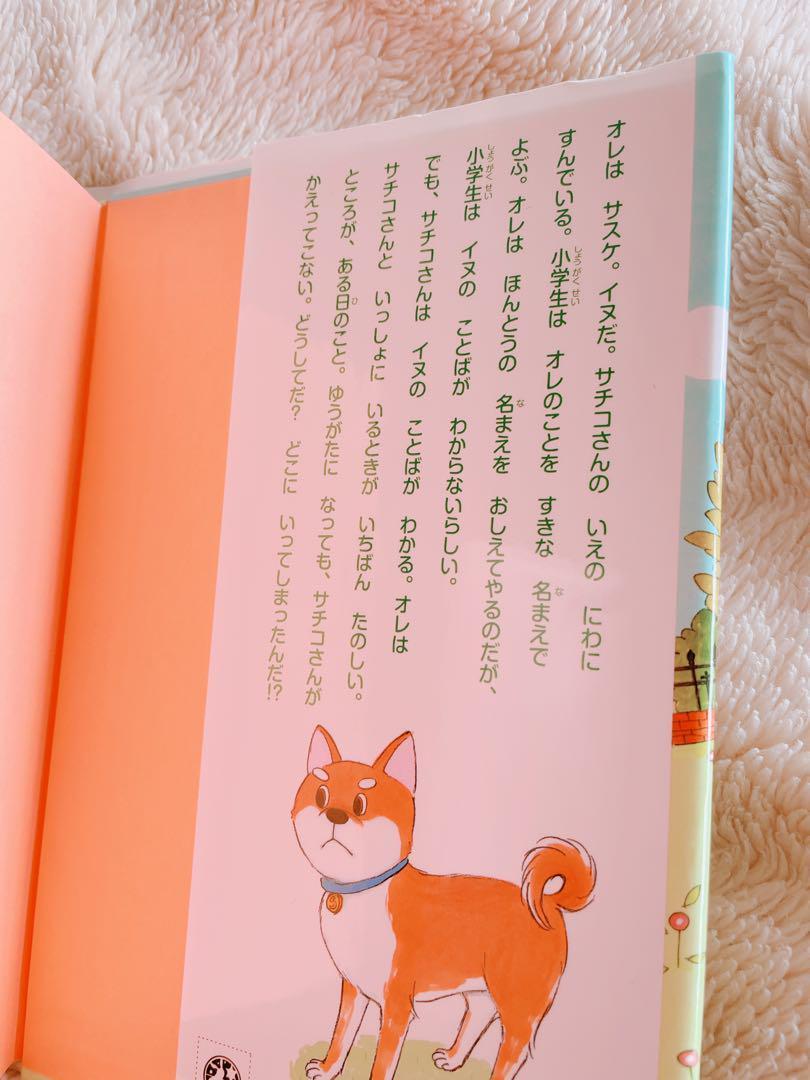 オレは　サスケ。イヌだ。サチコさんの　いえの　にわに
すんでいる。小学生は　オレのことを　すきな　名まえで
よぶ。オレは　ほんとうの　名まえを　おしえてやるのだが、
小学生は　イヌの　ことばが　わからないらしい。
でも、サチコさんは　イヌの　ことばが　わかる。オレは
サチコさんと　いっしょに　いるときが　いちばん　たのしい。
ところが、ある日のこと。ゆうがたに　なっても、サチコさんが
かえってこない。どうしてだ？　どこに　いってしまったんだ!?